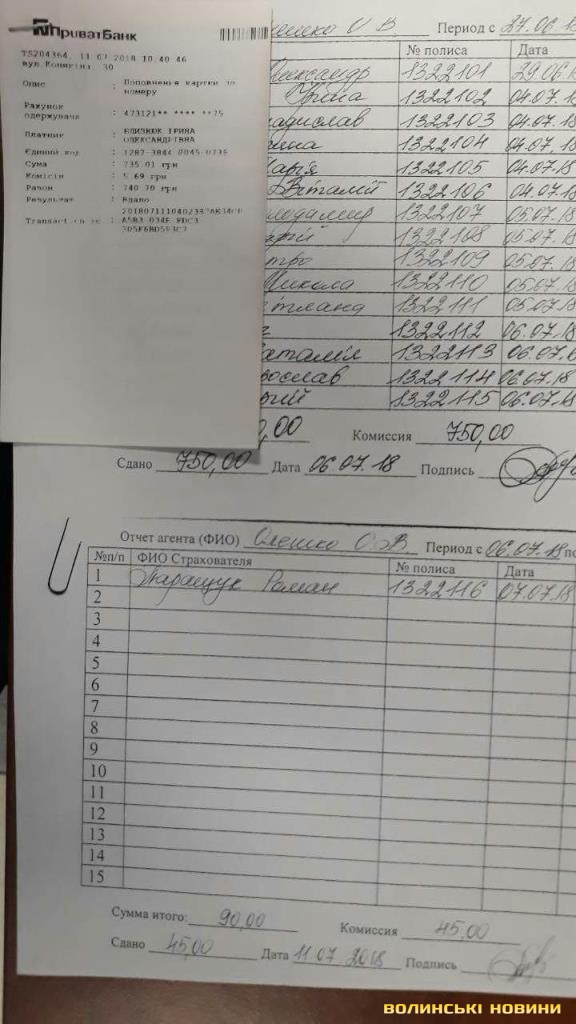 ПриватБанк
TS204364, 11 07 2018 10:40:46
вул Конякіна, 30
Опис : Поповнення картки по номеру
Рахунок одержувача : 473121** **** **75
Платник : БЛИЗНЮК ІРИНА ОЛЕКСАНДРІВНА
Єдиний код :
Сума : 735.01 грн
Комісія : 5.69 грн
Разом : 740.70 грн
Результат : Вдало
Период с 27.06.18
№ полиса Дата
Олександр 1322101 29.06.18
Ірина 1322102 04.07.18
Владислав 1322103 04.07.18
1322104 04.07.18
Марія 1322105 04.07.18
Віталій 1322106 04.07.18
1322107 05.07.18
1322108 05.07.18
1322109 05.07.18
Микола 1322110 05.07.18
1322111 05.07.18
1322112 06.07.18
Наталія 1322113 06.07.18
1322114 06.07.18
1322115 06.07.18
Комиссия 750,00
Сдано 750,00 Дата 06.07.18 Подпись
Отчет агента (ФИО) Олешко О.В. Период с 06.07.18 по
№п/п ФИО Страхователя № полиса Дата
1 Паращук Роман 1322116 07.07.18
2
3
4
5
6
7
8
9
10
11
12
13
14
15
Сумма итого: 90,00 Комиссия 45,00
Сдано 45,00 Дата 11.07.2018 Подпись
ВОЛИНСЬКІ НОВИНИ